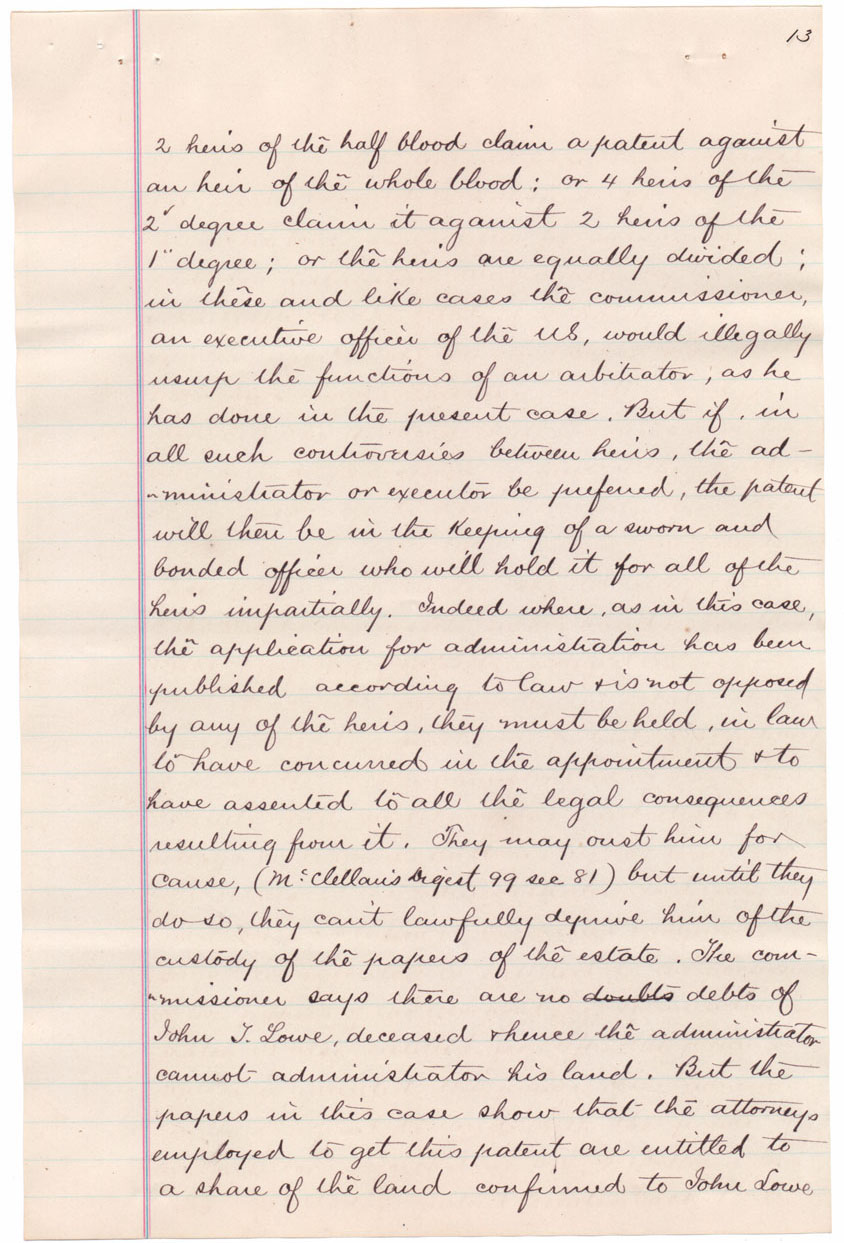 13
2 heirs of the half blood claim a patent against
an heir of the whole blood; or 4 heirs of the
2d degree claim it against 2 heirs of the
1" degree; or the heirs are equally divided;
in these and like cases the commissioner,
an executive officer of the US, would illegally
usurp the functions of an arbitrator, as he
has done in the present case. But if, in
all such controversies between heirs, the ad-
-ministrator or executor be preferred, the patent
will then be in the keeping of a sworn and
bonded officer who will hold it for all of the
heirs impartially. Indeed where, as in this case,
the application for administration has been
published according to law & is not opposed
by any of the heirs, they must be held, in law
to have concurred in the appointment & to
have assented to all the legal consequences
resulting from it. They may oust him for
cause, (McClellan's Digest 99 sec 81) but until they
do so, they can't lawfully deprive him of the
custody of the papers of the estate. The com-
-missioner says there are no doubts debts of
John T. Lowe, deceased & hence the administrator
cannot administrator his land. But the
papers in this case show that the attorneys
employed to get this patent are entitled to
a share of the land confirmed to John Lowe